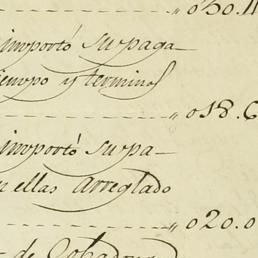 030.11
importó su paga
tiempo y terminos
018.6
importó su pa
en ellas arreglado
020.0
de Cobadonga